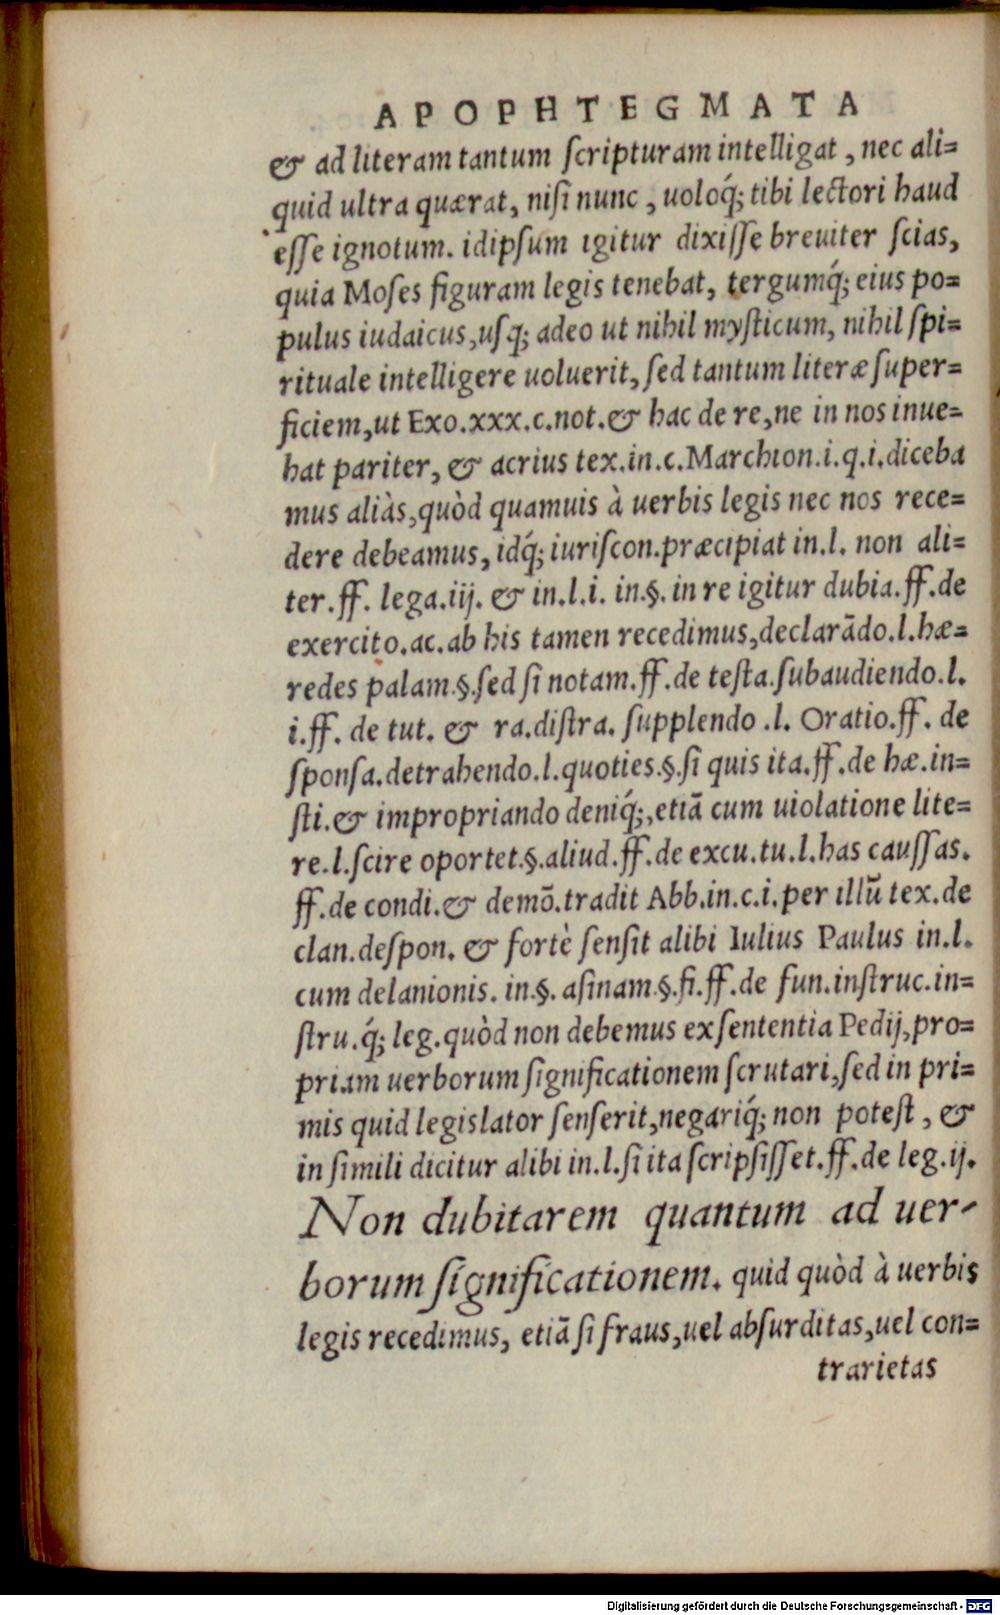 APOPHTEGMATA
& ad literam tantum ſcripturam intelligat , nec ali=
quid ultra quærat, niſi nunc , uoloq́; tibi lectori haud
eſſe ignotum. idipſum igitur dixiſſe breuiter ſcias,
quia Moſes figuram legis tenebat, tergumq́; eius po=
pulus iudaicus,uſq; adeo ut nihil myſticum, nihil ſpi=
rituale intelligere uoluerit, ſed tantum literæ ſuper=
ficiem,ut Exo.xxx.c.not.& hac de re,ne in nos inue=
hat pariter, & acrius tex.in.c.Marchion.i.q.i.diceba
mus aliàs,quòd quamuis à uerbis legis nec nos rece=
dere debeamus, idq́; iuriſcon.præcipiat in.l. non ali=
ter.ff. lega.iij. & in.l.i. in.§. in re igitur dubia.ff.de
exercito.ac.ab his tamen recedimus,declarãdo.l.hæ=
redes palam.§.ſed ſi notam.ff.de teſta.ſubaudiendo.l.
i.ff. de tut. & ra.diſtra. ſupplendo .l. Oratio.ff. de
ſponſa.detrahendo.l.quoties.§.ſi quis ita.ff.de hæ.in=
ſti.& impropriando deniq́;,etiã cum uiolatione lite=
re.l.ſcire oportet.§.aliud.ff.de excu.tu.l.has cauſſas.
ff.de condi.& demõ.tradit Abb.in.c.i.per illũ tex.de
clan.deſpon. & fortè ſenſit alibi Iulius Paulus in.l.
cum delanionis. in.§. aſinam.§.fi.ff.de fun.inſtruc.in=
ſtru.q́; leg.quòd non debemus ex ſententia Pedij,pro=
priam uerborum ſignificationem ſcrutari,ſed in pri=
mis quid legislator ſenſerit,negariq́; non poteſt , &
in ſimili dicitur alibi in.l.ſi ita ſcripſiſſet.ff.de leg.ij.
Non dubitarem quantum ad uer-
borum ſignificationem. quid quòd à uerbis
legis recedimus, etiã ſi fraus,uel abſurditas,uel con=
trarietas
Digitalisierung gefördert durch die Deutsche Forschungsgemeinschaft - DFG